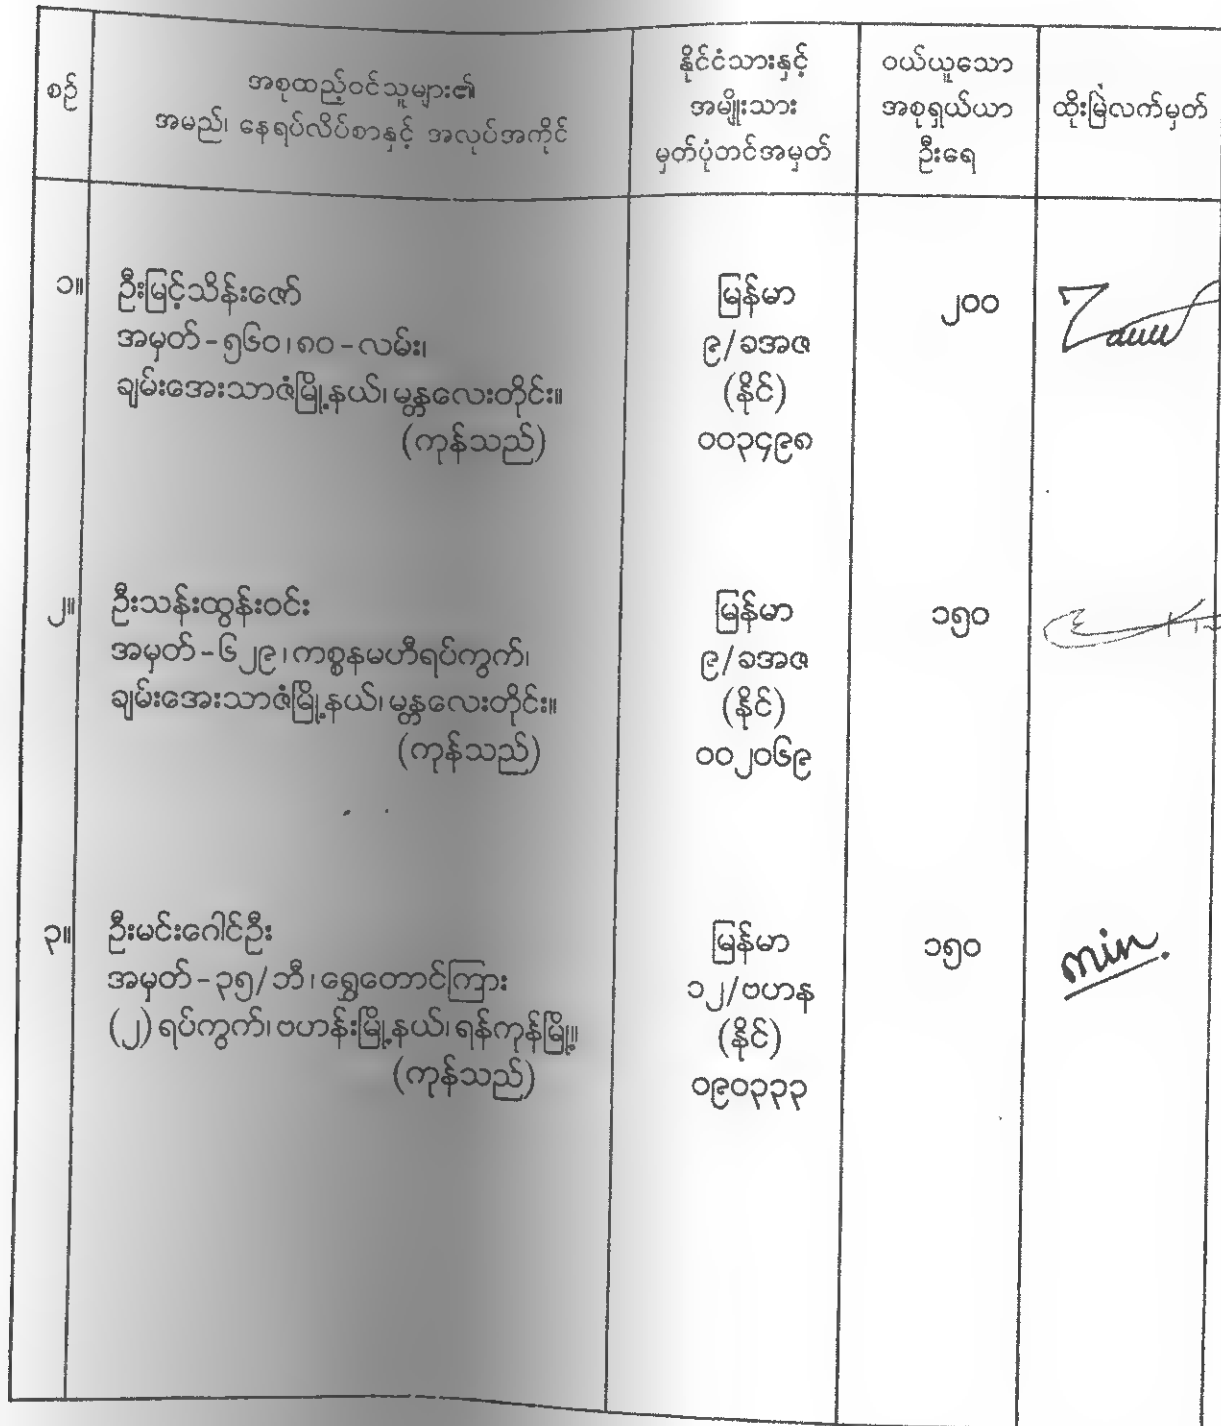 စဉ်
အစုထည့်ဝင်သူများ၏
အမည်၊ နေရပ်လိပ်စာနှင့် အလုပ်အကိုင်
နိုင်ငံသားနှင့်
အမျိုးသား
မှတ်ပုံတင်အမှတ်
ဝယ်ယူသော
အစုရှယ်ယာ
ဦးရေ
ထိုးမြဲလက်မှတ်
၁။
ဦးမြင့်သိန်းဇော်
အမှတ်-၅၆၀၊၈၀-လမ်း၊
ချမ်းအေးသာဇံမြို့နယ်၊ မန္တလေးတိုင်း။
(ကုန်သည်)
မြန်မာ
၉/ခအဇ
(နိုင်)
၀၀၃၄၉၈
၂၀၀
၂။
ဦးသန်းထွန်းဝင်း
အမှတ်-၆၂၉၊ကစ္စနမဟီရပ်ကွက်၊
ချမ်းအေးသာဇံမြို့နယ်၊ မန္တလေးတိုင်း။
(ကုန်သည်)
မြန်မာ
၉/ခအဇ
(နိုင်)
၀၀၂၀၆၉
၁၅၀
၃။
ဦးမင်းဂေါင်ဦး
အမှတ်-၃၅/ဘီ၊ရွှေတောင်ကြား
(၂)ရပ်ကွက်၊ ဗဟန်းမြို့နယ်၊ ရန်ကုန်မြို့။
(ကုန်သည်)
မြန်မာ
၁၂/ဗဟန
(နိုင်)
၀၉၀၃၃၃
၁၅၀
min.